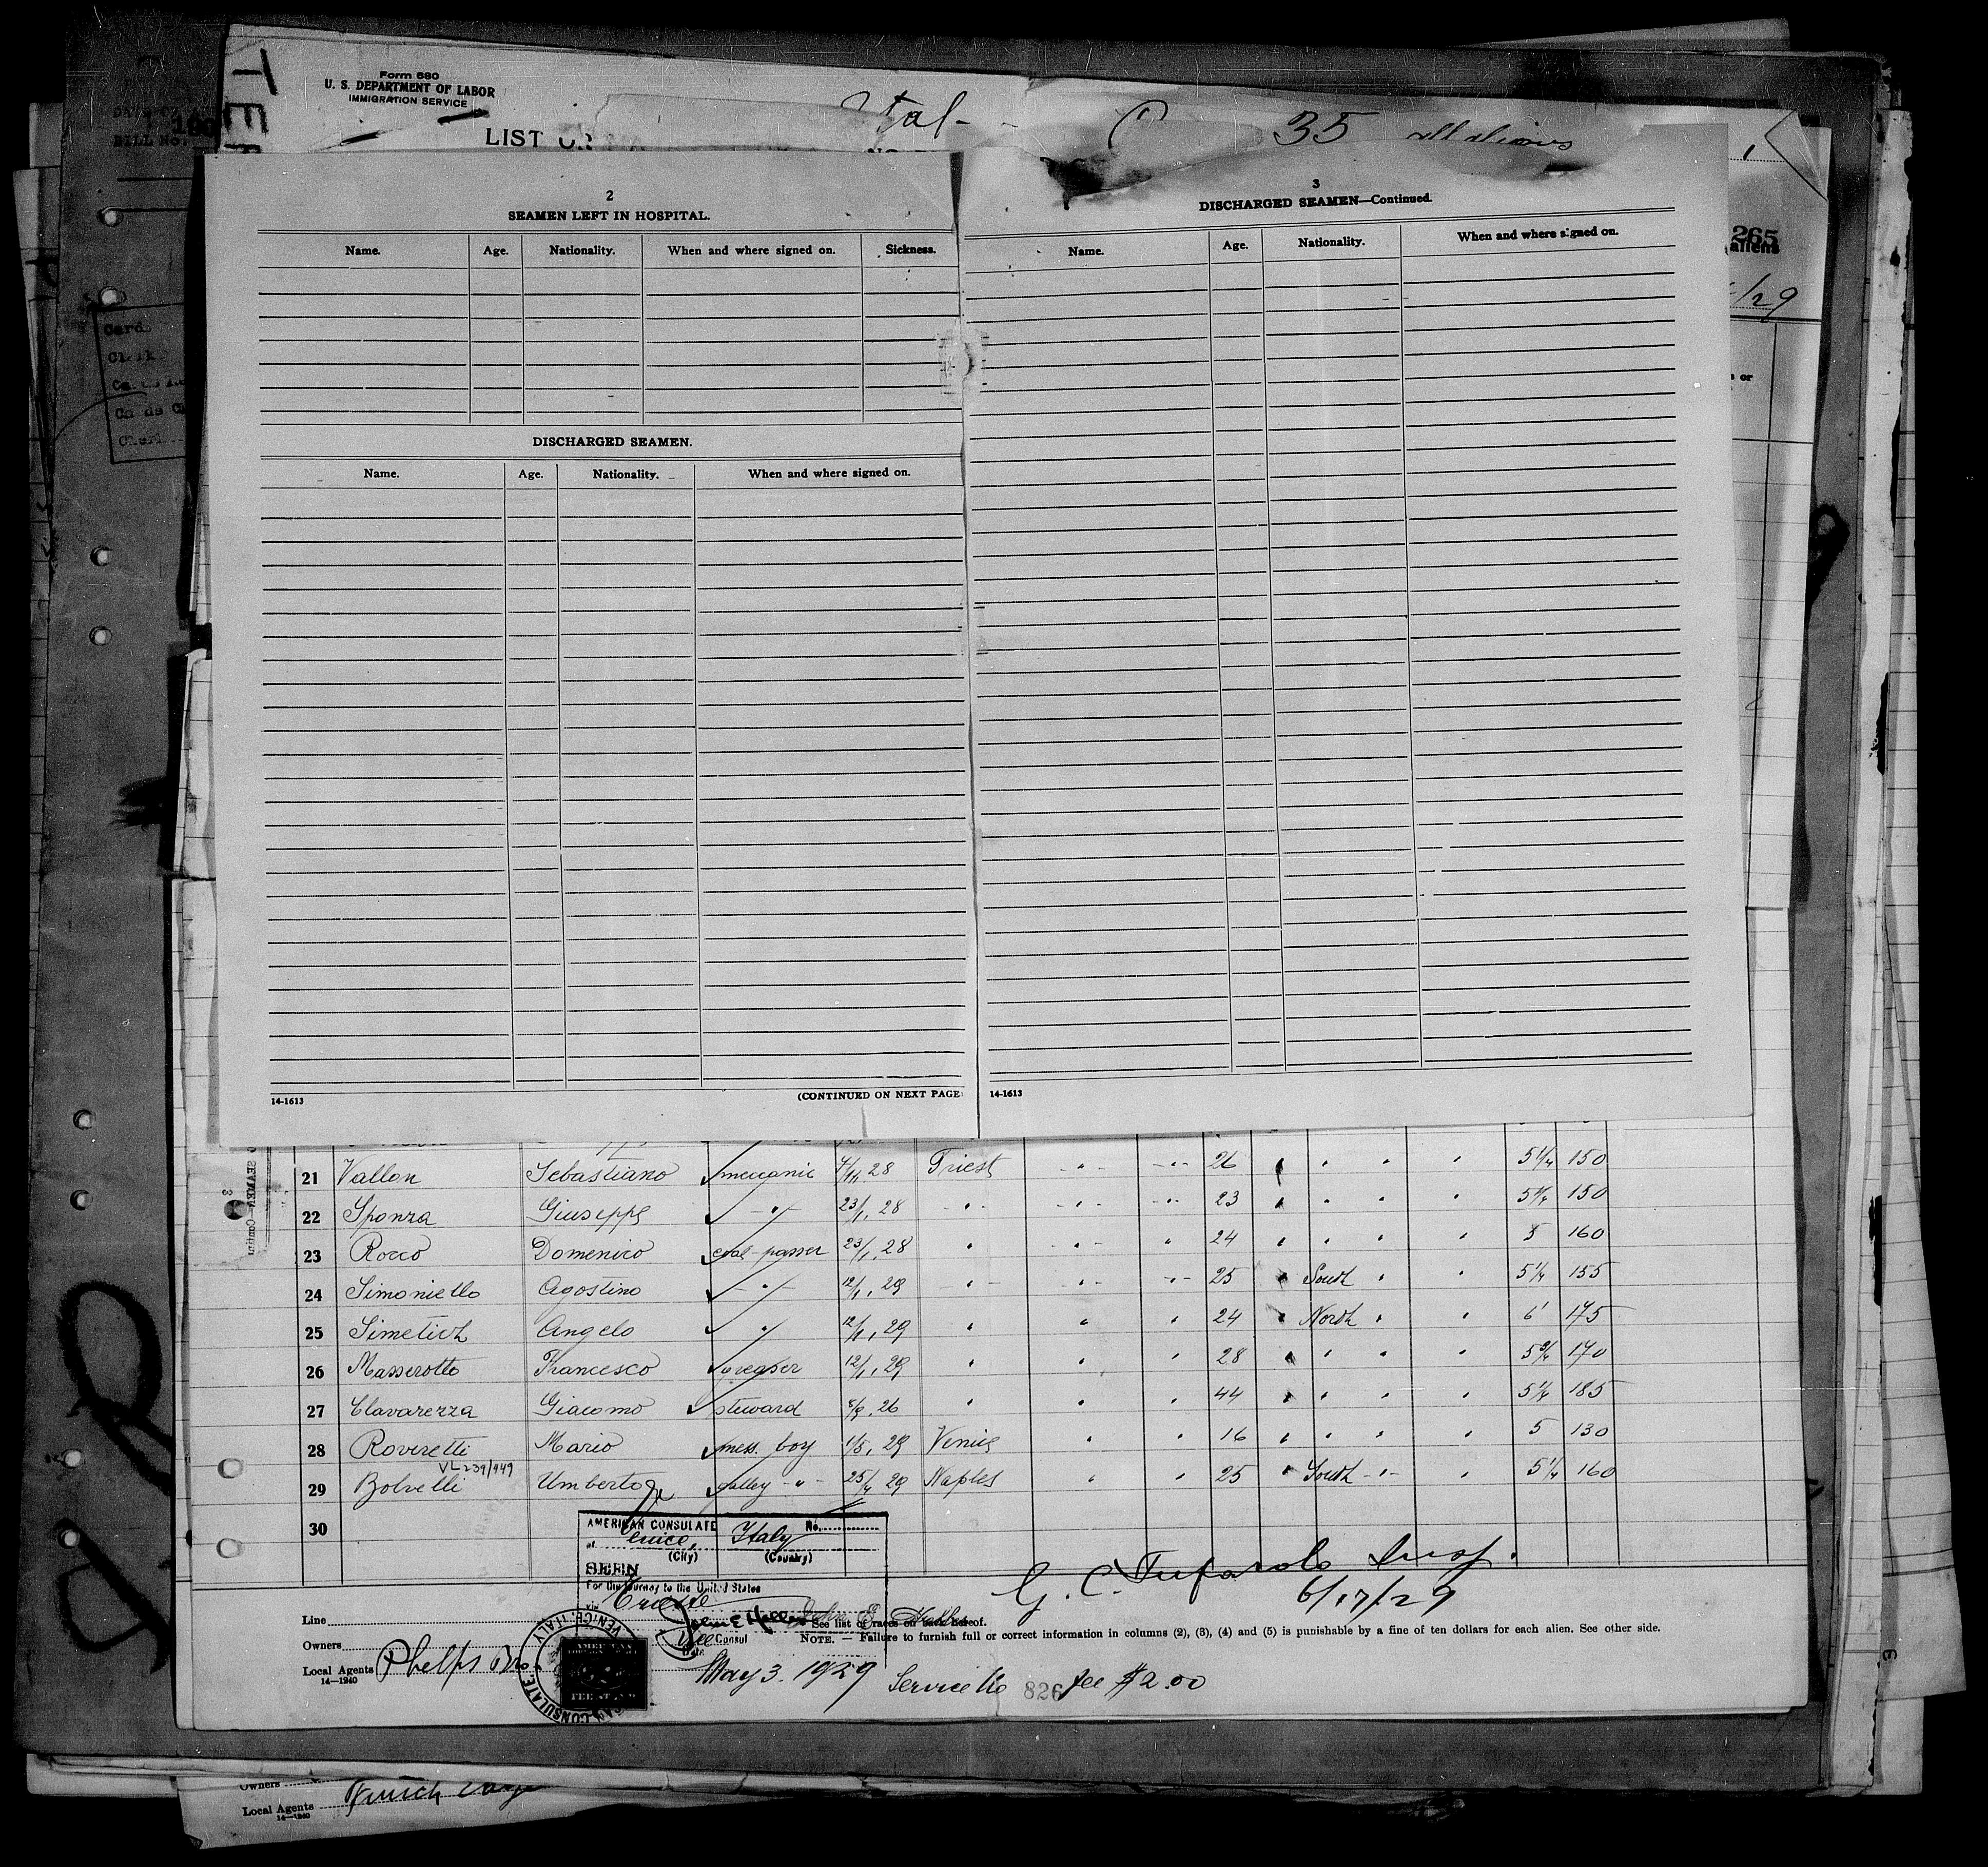 Form 680
U. S. DEPARTMENT OF LABOR
IMMIGRATION SERVICE
LIST OR
35 all aliens
265
aliens
/29
2
SEAMEN LEFT IN HOSPITAL.
Name. Age. Nationality. When and where signed on. Sickness.
DISCHARGED SEAMEN.
Name. Age. Nationality. When and where signed on.
14-1613 (CONTINUED ON NEXT PAGE
3
DISCHARGED SEAMEN—Continued.
Name. Age. Nationality. When and where signed on.
14-1613
21 Vallon Sebastiano meccanic 28 Triest " " 26 " " " " 5 1/4 150
22 Sponza Giuseppe " 23/1, 28 " " " 23 " " " " 150
23 Rocco Domenico coal-passer 23/1, 28 " " " 24 " " " " 5 160
24 Simoniello Agostino " 12/1, 29 " " " 25 " South " " 5 1/4 155
25 Simetich Angelo " 12/1, 29 " " " 24 " North " " 6' 175
26 Masserotto Francesco greaser 12/1, 29 " " " 28 " " " " 170
27 Clavarezza Giacomo steward 26 " " " 44 " " " " 185
28 Roveretti Mario mess. boy 1/5, 29 Venice " " 16 " " " " 5 130
VL 239/949
29 Bolvelli Umberto galley " 25/4 29 Naples " " 25 " South " " 5 1/4 160
30
AMERICAN CONSULATE No.
at Venice, Italy
(City) (Country)
SEEN
For the journey to the United States
via Trieste
Vice Consul
Date May 3. 1929
Service No 826 fee $2.00
G. C. Tufarolo Insp.
6/17/29
Line
See list of races on back hereof.
Owners
NOTE. — Failure to furnish full or correct information in columns (2), (3), (4) and (5) is punishable by a fine of ten dollars for each alien. See other side.
Local Agents Phelps Bro
14—1240
Owners
Local Agents
14—1240